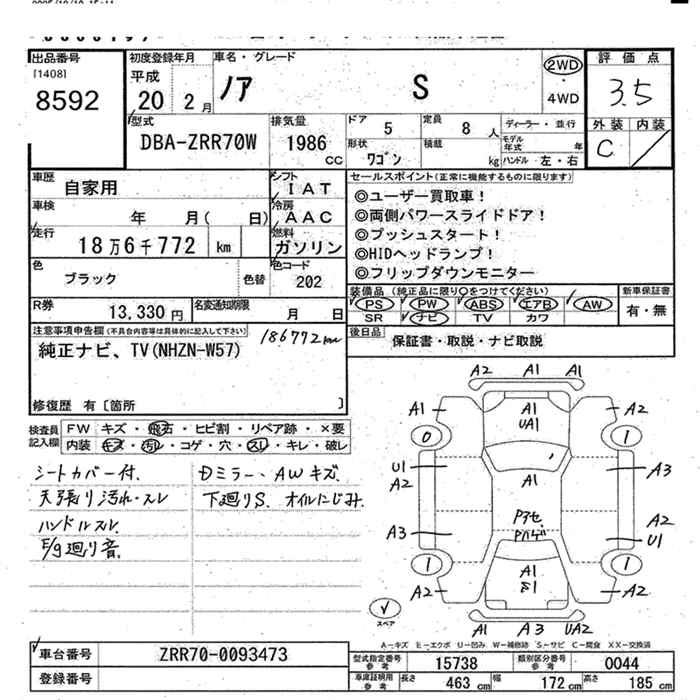 出品番号
[1408]
8592
初度登録年月
平成
20 2月
車名・グレード
ノア S
2WD
・
4WD
評価点
3.5
外装 内装
C
型式
DBA-ZRR70W
排気量
1986
CC
ドア
5
形状
ワゴン
定員
8 人
積載
kg
ディーラー・並行
モデル年式 年
ハンドル 左・右
車歴
自家用
シフト
IAT
車検
年 月( 日)
冷房
AAC
走行
18万6千772 km
燃料
ガソリン
色
ブラック
色替
色コード
202
R券
13,330 円
名変通知期限
月 日
セールスポイント(正常に機能するものに限ります)
◎ユーザー買取車!
◎両側パワースライドドア!
◎プッシュスタート!
◎HIDヘッドランプ!
◎フリップダウンモニター
装備品 (純正品に限り○をつけてください)
PS PW ABS エアB AW
SR ナビ TV カワ
新車保証書
有・無
後日品
保証書・取説・ナビ取説
注意事項申告欄(不具合内容等は具体的に記入して下さい)
186772km
純正ナビ、TV(NHZN-W57)
修復歴 有〔箇所 〕
検査員
記入欄
FW キズ・飛石・ヒビ割・リペア跡・×要
内装 キズ・汚れ・コゲ・穴・スレ・キレ・破レ
シートカバー付、
天張り汚れ・スレ
ハンドルスレ
E/g廻り音、
Dミラー、AWキズ、
下廻りS、オイルにじみ、
A2 A1 A1
A1 A1 A2
UA1
0 1
U1 A1 A3
A2
Pアセ A2
A3 Pハゲ U1
1 A1 1
A2 S1 A2
スペア
A1 A3 UA2
A-キズ E-エクボ U-凹み W-補修跡 S-サビ C-腐食 XX-交換済
車台番号
ZRR70-0093473
登録番号
型式指定番号
参考
15738
類別区分番号
参考
0044
車庫証明用
参考
長さ 463 cm 幅 172 cm 高さ 185 cm